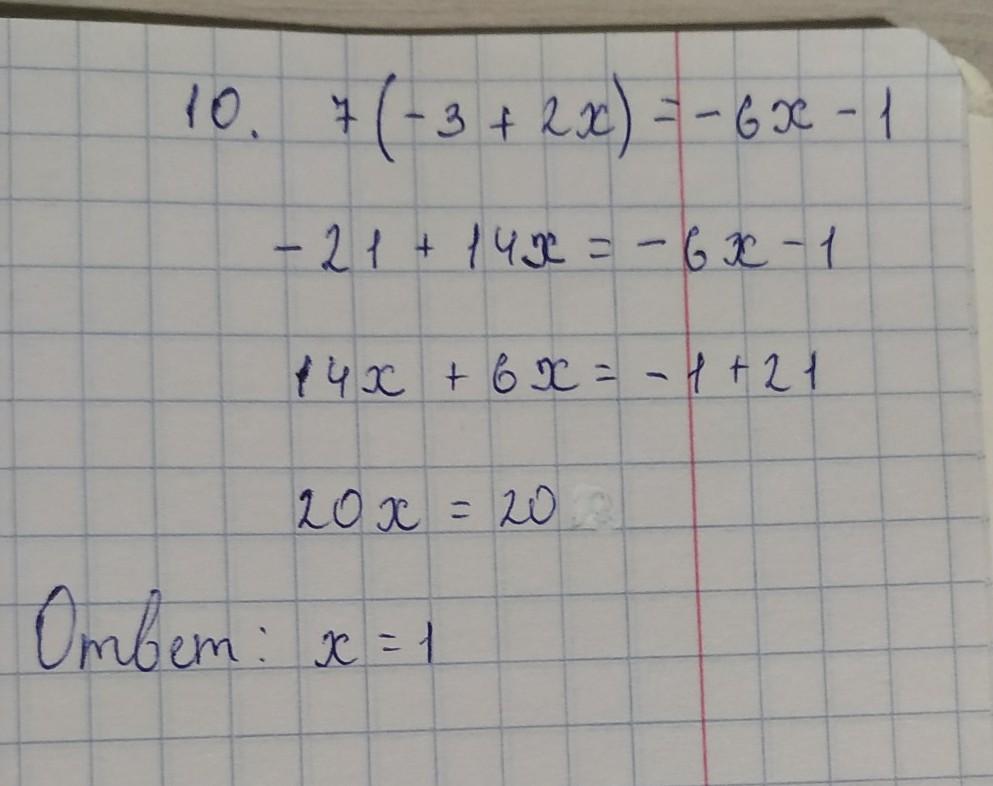 10. 7(-3 + 2x) = -6x - 1
-21 + 14x = -6x - 1
14x + 6x = -1 + 21
20x = 20
Ответ: x = 1